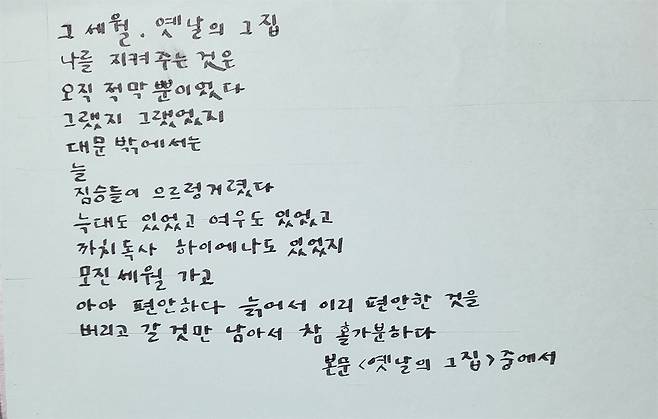 그 세월, 옛날의 그 집
나를 지켜주는 것은
오직 적막뿐이었다
그랬지 그랬었지
대문 밖에서는
늘
짐승들이 으르렁거렸다
늑대도 있었고 여우도 있었고
까치독사 하이에나도 있었지
모진 세월 가고
아아 편안하다 늙어서 이리 편안한 것을
버리고 갈 것만 남아서 참 홀가분하다
본문 <옛날의 그 집> 중에서